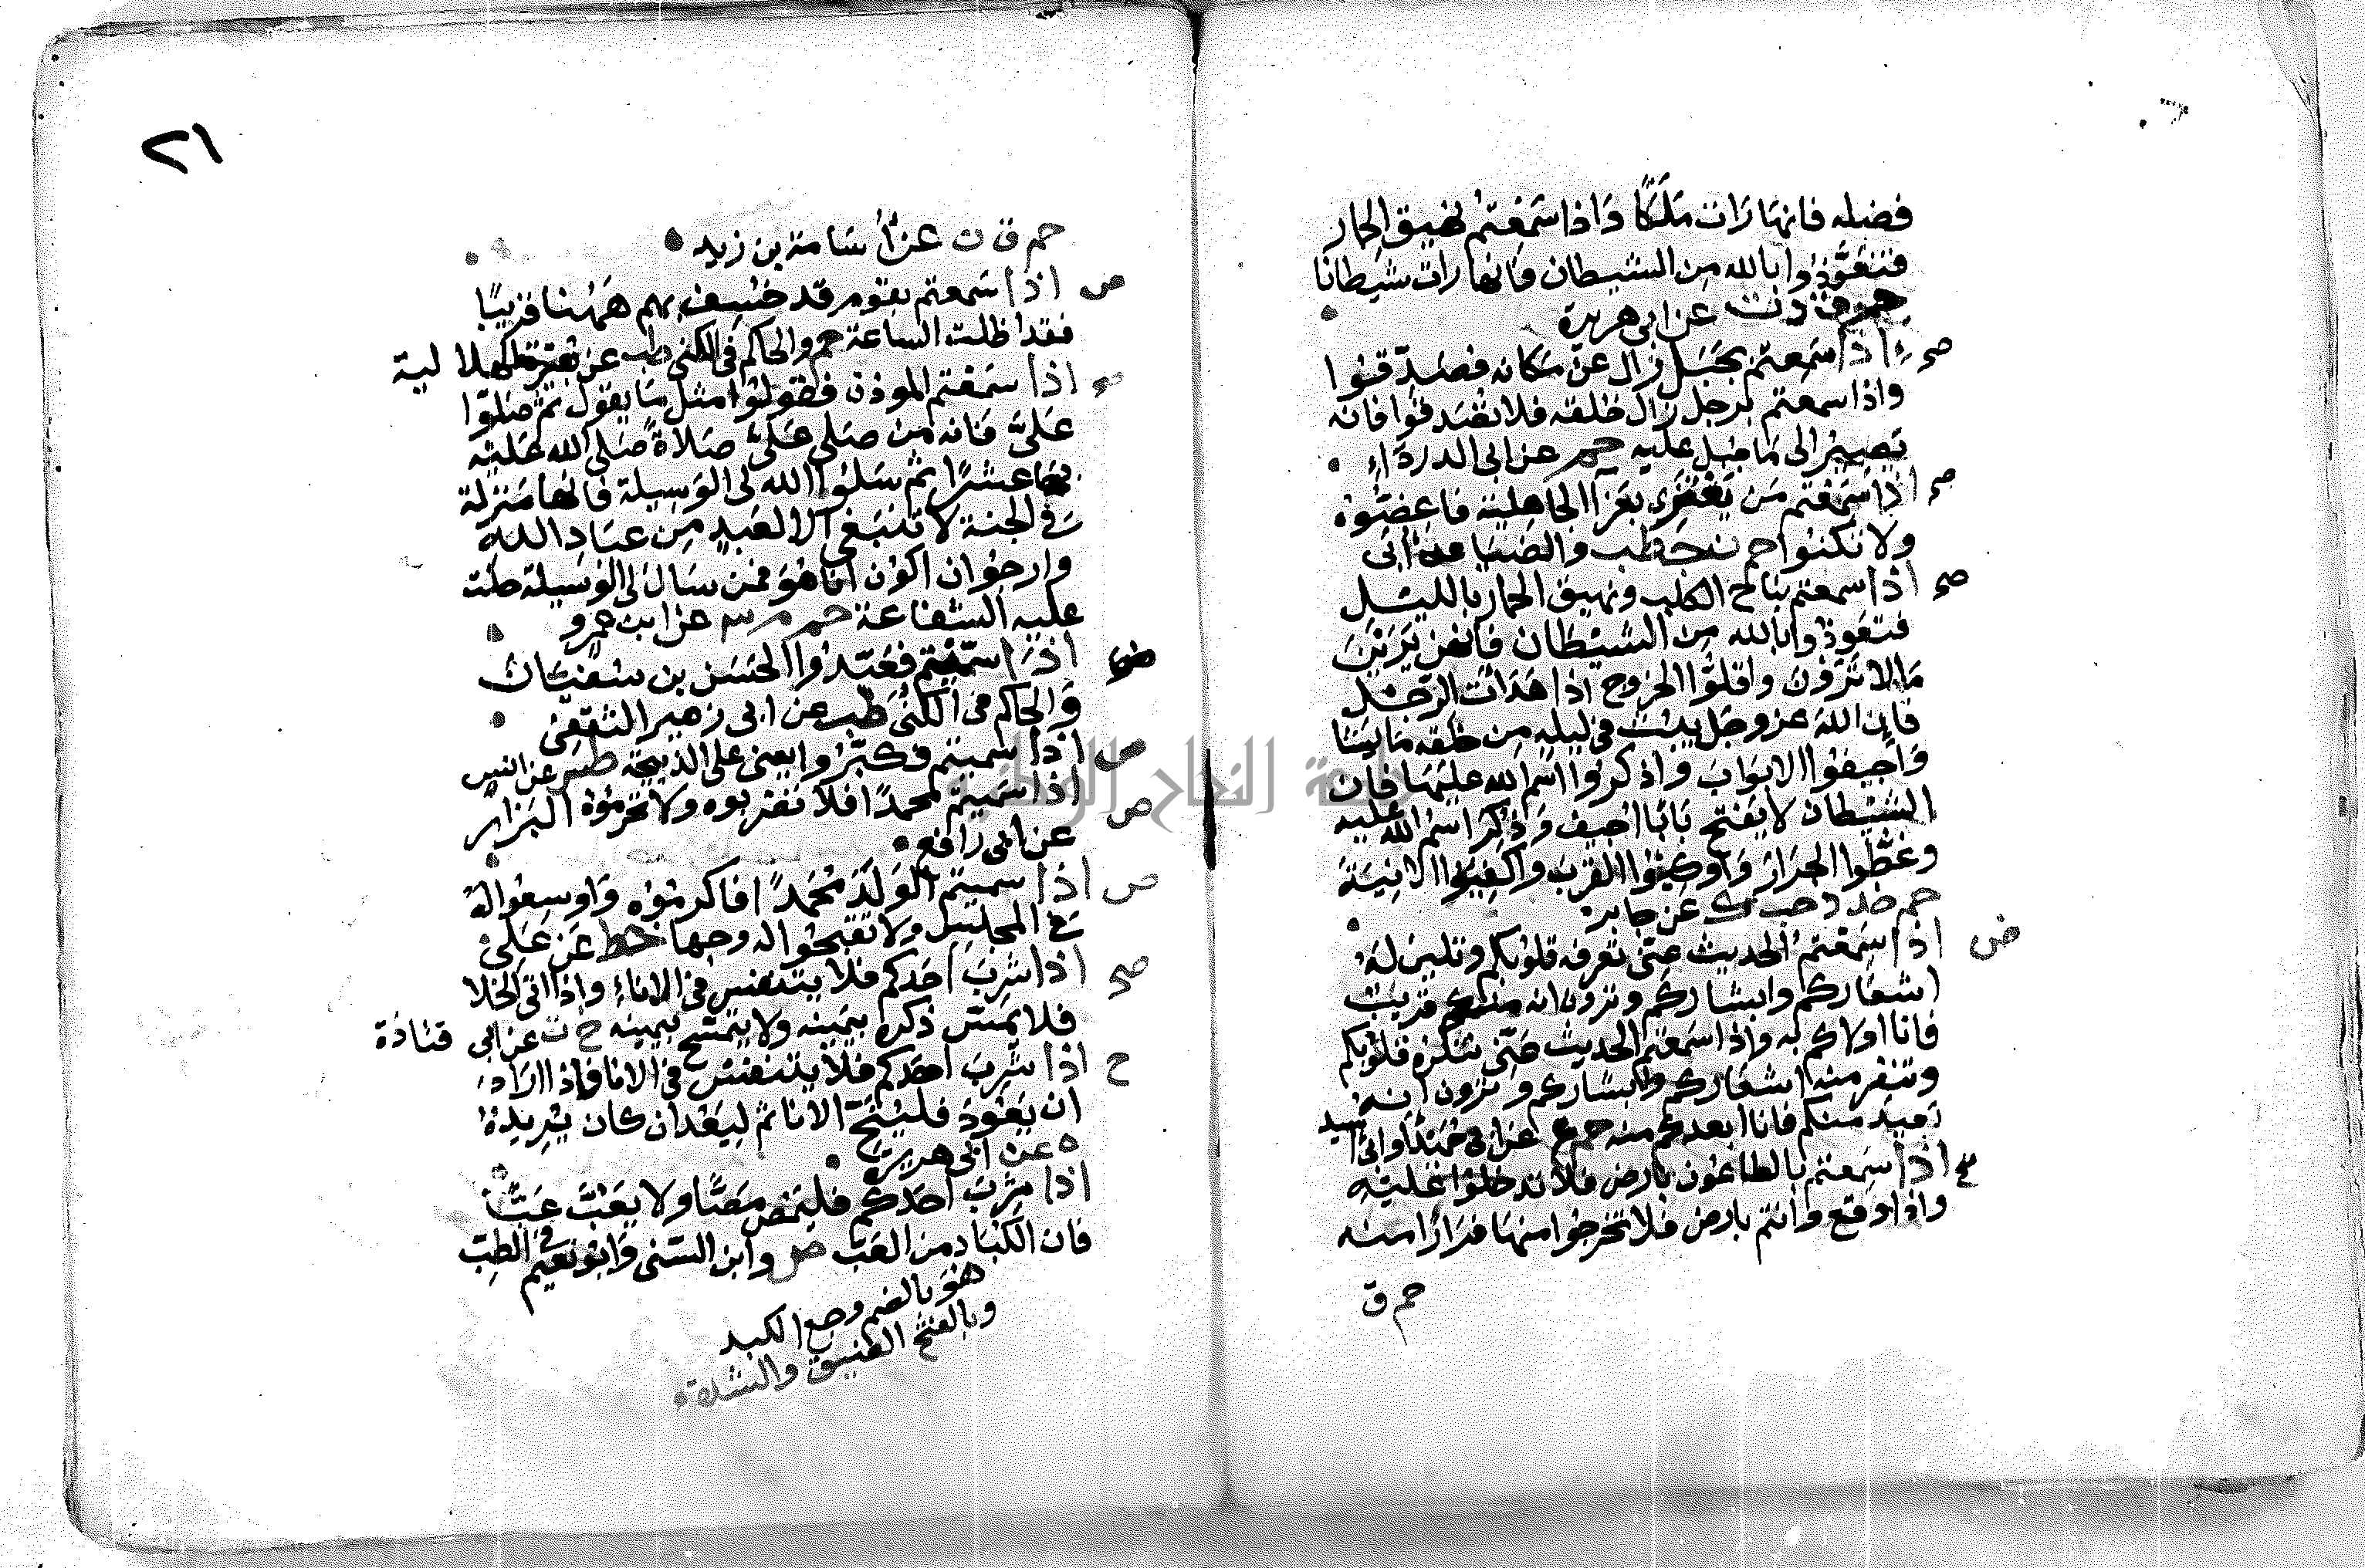 فضله فانها رات ملكا واذا سمعتم نهيق الحمار
فتعوذوا بالله من الشيطان فانها رات شيطانا
حم ق د ت عن ابي هريرة
صح اذا سمعتم بجبل زال عن مكانه فصدقوا
واذا سمعتم برجل زال خلقه فلا تصدقوا فانه
يصير الى ما جبل عليه حم عن ابي الدرداء
صح اذا سمعتم من يعتزي بعزآ الجاهلية فاعضوه
ولا تكنوا حم ن حب طب والضيا عن ابي
صح اذا سمعتم نباح الكلب ونهيق الحمار بالليل
فتعوذوا بالله من الشيطان فانهن يرين
ما لا ترون واقلوا الخروج اذا هدات الرجل
فان الله عز وجل يبث في ليله من خلقه ما يشا
واجيفوا الابواب واذكروا اسم الله عليها فان
الشيطان لا يفتح بابا اجيف وذكر اسم الله عليه
وغطوا الجرار واوكئوا القرب واكفئوا الانية
حم خد د حب ك عن جابر
ض اذا سمعتم الحديث عني تعرفه قلوبكم وتلين له
اشعاركم وابشاركم وترون انه منكم قريب
فانا اولاكم به واذا سمعتم الحديث عني تنكره قلوبكم
وتنفر منه اشعاركم وابشاركم وترون انه
بعيد منكم فانا ابعدكم منه حم ع عن ابي حميد او ابي اسيد
صح اذا سمعتم بالطاعون بارض فلا تدخلوا عليه
واذا وقع وانتم بارض فلا تخرجوا منها فرارا منه
حم ق
٢١
حم ق ن عن اسامة بن زيد
ض اذا سمعتم بقوم قد خسف بهم ههنا قريبا
فقد اظلت الساعة حم والحاكم في الكنى طب عن بقيرة الهلالية
صح اذا سمعتم الموذن فقولوا مثل ما يقول ثم صلوا
علي فانه من صلى علي صلاة صلى الله عليه
بها عشرا ثم سلوا الله لي الوسيلة فانها منزلة
في الجنة لا تنبغي الا لعبد من عباد الله
وارجوا ان اكون انا هو فمن سال لي الوسيلة حلت
عليه الشفاعة حم م ٣ عن ابن عمرو
ض اذا سميتم فعبدوا الحسن بن سفيان
والحاكم في الكنى طب عن ابي زهير الثقفي
ض اذا سميتم فكبروا يعني على الذبيحة طس عن انس
ض اذا سميتم محمدا فلا تضربوه ولا تحرموه البزار
عن ابي رافع
ض اذا سميتم الولد محمدا فاكرموه واوسعوا له
في المجلس ولا تقبحوا له وجها خط عن علي
صح اذا شرب احدكم فلا يتنفس في الاناء واذا اتى الخلا
فلا يمس ذكره بيمينه ولا يتمسح بيمينه خ ت عن ابي قتادة
ح اذا شرب احدكم فلا يتنفس في الانا فاذا اراد
ان يعود فلينح الانا ثم ليعد ان كان يريده
ه عن ابي هريرة
اذا شرب احدكم فليمص مصا ولا يعب عبا
فان الكباد من العب ص وابن السني وابو نعيم في الطب
هو بالضم وجع الكبد
وبالفتح الضيق والشدة